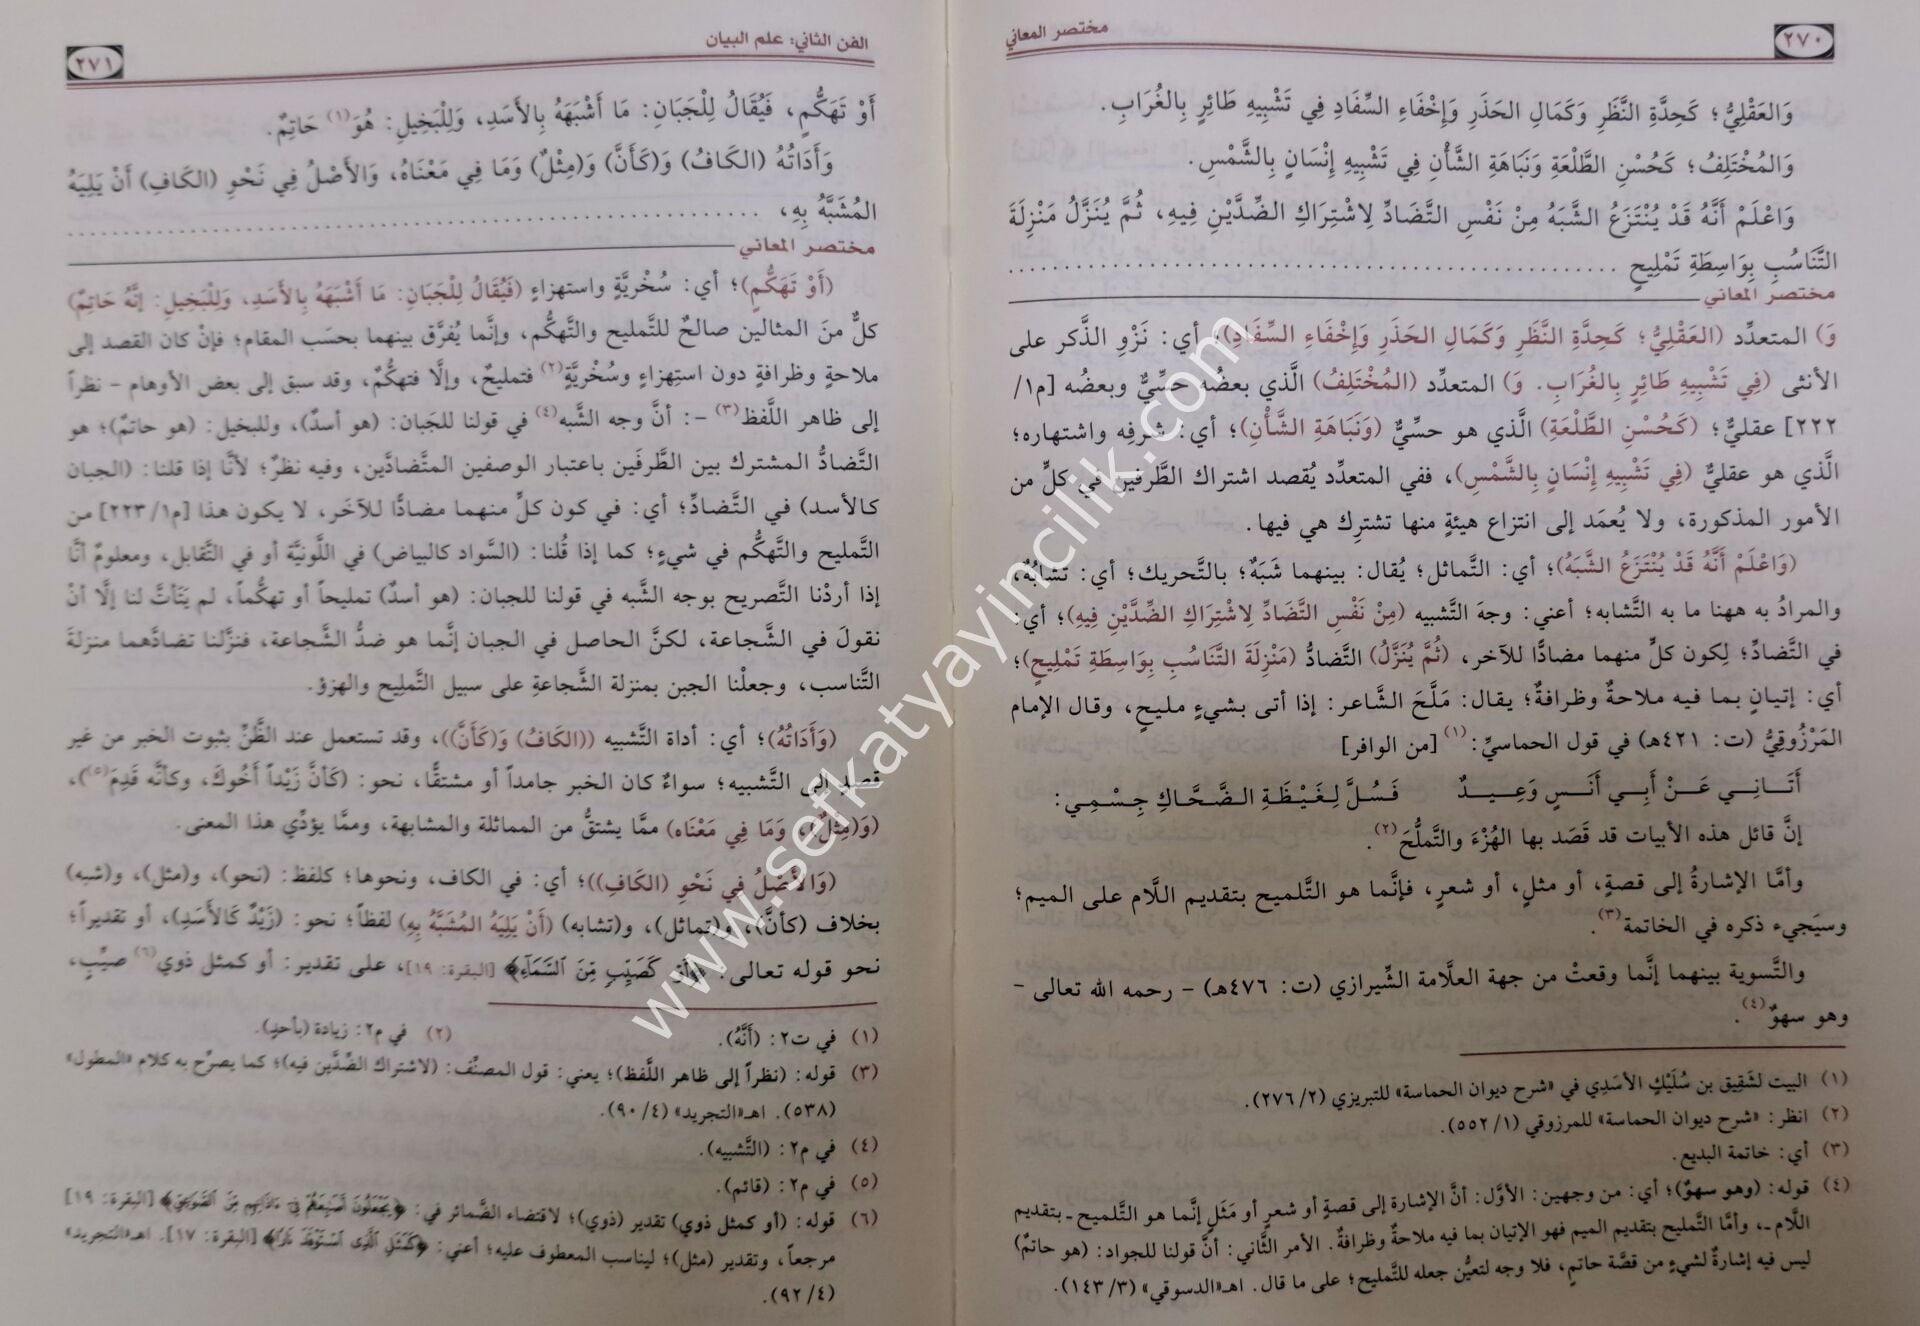 ٢٧٠
مختصر المعاني
وَالعَقْلِيُّ؛ كَحِدَّةِ النَّظَرِ وَكَمَالِ الحَذَرِ وَإِخْفَاءِ السِّفَادِ فِي تَشْبِيهِ طَائِرٍ بِالغُرَابِ.
وَالمُخْتَلِفُ؛ كَحُسْنِ الطَّلْعَةِ وَنَبَاهَةِ الشَّأْنِ فِي تَشْبِيهِ إِنْسَانٍ بِالشَّمْسِ.
وَاعْلَمْ أَنَّهُ قَدْ يُنْتَزَعُ الشَّبَهُ مِنْ نَفْسِ التَّضَادِّ لِاشْتِرَاكِ الضِّدَّيْنِ فِيهِ، ثُمَّ يُنَزَّلُ مَنْزِلَةَ
التَّنَاسُبِ بِوَاسِطَةِ تَمْلِيحٍ ............................................................
مختصر المعاني
(وَ) المتعدِّد (العَقْلِيُّ؛ كَحِدَّةِ النَّظَرِ وَكَمَالِ الحَذَرِ وَإِخْفَاءِ السِّفَادِ)؛ أي: نَزْوِ الذَّكر على
الأنثى (فِي تَشْبِيهِ طَائِرٍ بِالغُرَابِ. وَ) المتعدِّد (المُخْتَلِفُ) الَّذي بعضُه حسِّيٌّ وبعضُه [م١/
٢٢٢] عقليٌّ؛ (كَحُسْنِ الطَّلْعَةِ) الَّذي هو حسِّيٌّ (وَنَبَاهَةِ الشَّأْنِ)؛ أي: شرفِه واشتهاره؛
الَّذي هو عقليٌّ (فِي تَشْبِيهِ إِنْسَانٍ بِالشَّمْسِ)، ففي المتعدِّد يُقصد اشتراك الطَّرفين في كلٍّ من
الأمور المذكورة، ولا يُعمَد إلى انتزاع هيئةٍ منها تشترك هي فيها.
(وَاعْلَمْ أَنَّهُ قَدْ يُنْتَزَعُ الشَّبَهُ)؛ أي: التَّماثل؛ يُقال: بينهما شَبَهٌ؛ بالتَّحريك؛ أي: تشابُهٌ،
والمرادُ به ههنا ما به التَّشابه؛ أعني: وجهَ التَّشبيه (مِنْ نَفْسِ التَّضَادِّ لِاشْتِرَاكِ الضِّدَّيْنِ فِيهِ)؛ أي:
في التَّضادِّ؛ لِكون كلٍّ منهما مضادًّا للآخر، (ثُمَّ يُنَزَّلُ) التَّضادُّ (مَنْزِلَةَ التَّنَاسُبِ بِوَاسِطَةِ تَمْلِيحٍ)؛
أي: إتيانٍ بما فيه ملاحةٌ وظرافةٌ؛ يقال: مَلَّحَ الشَّاعر: إذا أتى بشيءٍ مليحٍ، وقال الإمام
المَرْزُوقِيُّ (ت: ٤٢١هـ) في قول الحماسيِّ:(١) [من الوافر]
أَتَـانِـي عَـنْ أَبِـي أَنَـسٍ وَعِـيـدٌ فَـسُلَّ لِـغَـيْـظَةِ الـضَّـحَّاكِ جِـسْـمِـي:
إنَّ قائل هذه الأبيات قد قَصَد بها الهُزْءَ والتَّملُّحَ(٢).
وأمَّا الإشارةُ إلى قصةٍ، أو مثلٍ، أو شعرٍ، فإنَّما هو التَّلميح بتقديم اللَّام على الميم؛
وسيَجيء ذكره في الخاتمة(٣).
والتَّسوية بينهما إنَّما وقعتْ من جهة العلَّامة الشِّيرازي (ت: ٤٧٦هـ) - رحمه الله تعالى -
وهو سهوٌ(٤).
(١) البيت لشَقِيق بن سُلَيْكٍ الأسَدِي في «شرح ديوان الحماسة» للتبريزي (٢/ ٢٧٦).
(٢) انظر: «شرح ديوان الحماسة» للمرزوقي (١/ ٥٥٢).
(٣) أي: خاتمة البديع.
(٤) قوله: (وهو سهوٌ)؛ أي: من وجهين: الأوَّل: أنَّ الإشارة إلى قصةٍ أو شعرٍ أو مَثَلٍ إنَّما هو التَّلميح ـ بتقديم
اللَّام ـ، وأمَّا التَّمليح بتقديم الميم فهو الإتيان بما فيه ملاحةٌ وظرافةٌ. الأمر الثَّاني: أنَّ قولنا للجواد: (هو حاتمٌ)
ليس فيه إشارةٌ لشيءٍ من قصَّة حاتمٍ، فلا وجه لتعيُّن جعله للتَّمليح؛ على ما قال. اهـ«الدسوقي» (٣/ ١٤٣).
الفن الثاني: علم البيان
٢٧١
أَوْ تَهَكُّمٍ، فَيُقَالُ لِلْجَبَانِ: مَا أَشْبَهَهُ بِالأَسَدِ، وَلِلْبَخِيلِ: هُوَ(١) حَاتِمٌ.
وَأَدَاتُهُ (الكَافُ) وَ(كَأَنَّ) وَ(مِثْلٌ) وَمَا فِي مَعْنَاهُ، وَالأَصْلُ فِي نَحْوِ (الكَافِ) أَنْ يَلِيَهُ
المُشَبَّهُ بِهِ، ............................................................
مختصر المعاني
(أَوْ تَهَكُّمٍ)؛ أي: سُخْرِيَّةٍ واستهزاءٍ (فَيُقَالُ لِلْجَبَانِ: مَا أَشْبَهَهُ بِالأَسَدِ، وَلِلْبَخِيلِ: إنَّهُ حَاتِمٌ)
كلٌّ منَ المثالين صالحٌ للتَّمليح والتَّهكُّم، وإنَّما يُفرَّق بينهما بحسَب المقام؛ فإنْ كان القصد إلى
ملاحةٍ وظرافةٍ دون استِهزاءٍ وسُخْريَّةٍ(٢) فتمليحٌ، وإلَّا فتهكُّمٌ، وقد سبق إلى بعض الأوهام - نظراً
إلى ظاهر اللَّفظ(٣) -: أنَّ وجه الشَّبه(٤) في قولنا للجَبان: (هو أسدٌ)، وللبخيل: (هو حاتمٌ)؛ هو
التَّضادُّ المشترك بين الطَّرفَين باعتبار الوصفين المتَّضادَّين، وفيه نظرٌ؛ لأنَّا إذا قلنا: (الجبان
كالأسد) في التَّضادِّ؛ أي: في كون كلٍّ منهما مضادًّا للآخَر، لا يكون هذا [م١/ ٢٢٣] من
التَّمليح والتَّهكُّم في شيءٍ؛ كما إذا قُلنا: (السَّواد كالبياض) في اللَّونيَّة أو في التَّقابل، ومعلومٌ أنَّا
إذا أردْنا التَّصريح بوجه الشَّبه في قولنا للجبان: (هو أسدٌ) تمليحاً أو تهكُّماً، لم يَتأتَّ لنا إلَّا أنْ
نقولَ في الشَّجاعة، لكنَّ الحاصل في الجبان إنَّما هو ضدُّ الشَّجاعة، فنزَّلنا تضادَّهما منزلةَ
التَّناسب، وجعلْنا الجبن بمنزلة الشَّجاعةِ على سبيل التَّمليح والهزؤ.
(وَأَدَاتُهُ)؛ أي: أداة التَّشبيه ((الكَافُ) وَ(كَأَنَّ))، وقد تستعمل عند الظَّنِّ بثبوت الخبر من غير
قصدٍ إلى التَّشبيه؛ سواءٌ كان الخبر جامداً أو مشتقًّا، نحو: (كأنَّ زَيْداً أَخُوكَ، وكأنَّه قَدِمَ(٥))،
(وَ(مِثْلٌ)، وَمَا فِي مَعْنَاه) ممَّا يشتقُّ من المماثلة والمشابهة، وممَّا يؤدِّي هذا المعنى.
(وَالأَصْلُ فِي نَحْوِ (الكَافِ))؛ أي: في الكاف، ونحوها؛ كلفظ: (نحو)، و(مثل)، و(شبه)
بخلاف (كأنَّ)، و(تماثل)، و(تشابه) (أَنْ يَلِيَهُ المُشَبَّهُ بِهِ) لفظاً؛ نحو: (زَيْدٌ كَالأَسَدِ)، أو تقديراً؛
نحو قوله تعالى: ﴿أَوْ كَصَيِّبٍ مِّنَ السَّمَآءِ﴾ [البقرة: ١٩]، على تقدير: أو كمثل ذوي(٦) صيِّبٍ،
(١) في ت٢: (أنَّهُ). (٢) في م٢: زيادة (بأحدٍ).
(٣) قوله: (نظراً إلى ظاهر اللَّفظ)؛ يعني: قول المصنِّف: (لاشتراك الضِّدَّين فيه)؛ كما يصرِّح به كلام «المطول»
(٥٣٨). اهـ«التجريد» (٤/ ٩٠).
(٤) في م٢: (التَّشبيه).
(٥) في م٢: (قائم).
(٦) قوله: (أو كمثل ذوي) تقدير (ذوي)؛ لاقتضاء الضَّمائر في: ﴿يَجْعَلُونَ أَصَٰبِعَهُمْ فِىٓ ءَاذَانِهِم مِّنَ الصَّوَٰعِقِ﴾ [البقرة: ١٩]
مرجعاً، وتقدير (مثل)؛ ليناسب المعطوف عليه؛ أعني: ﴿كَمَثَلِ الَّذِى اسْتَوْقَدَ نَارًا﴾ [البقرة: ١٧]. اهـ«التجريد»
(٤/ ٩٢).
www.sefkatyayincilik.com